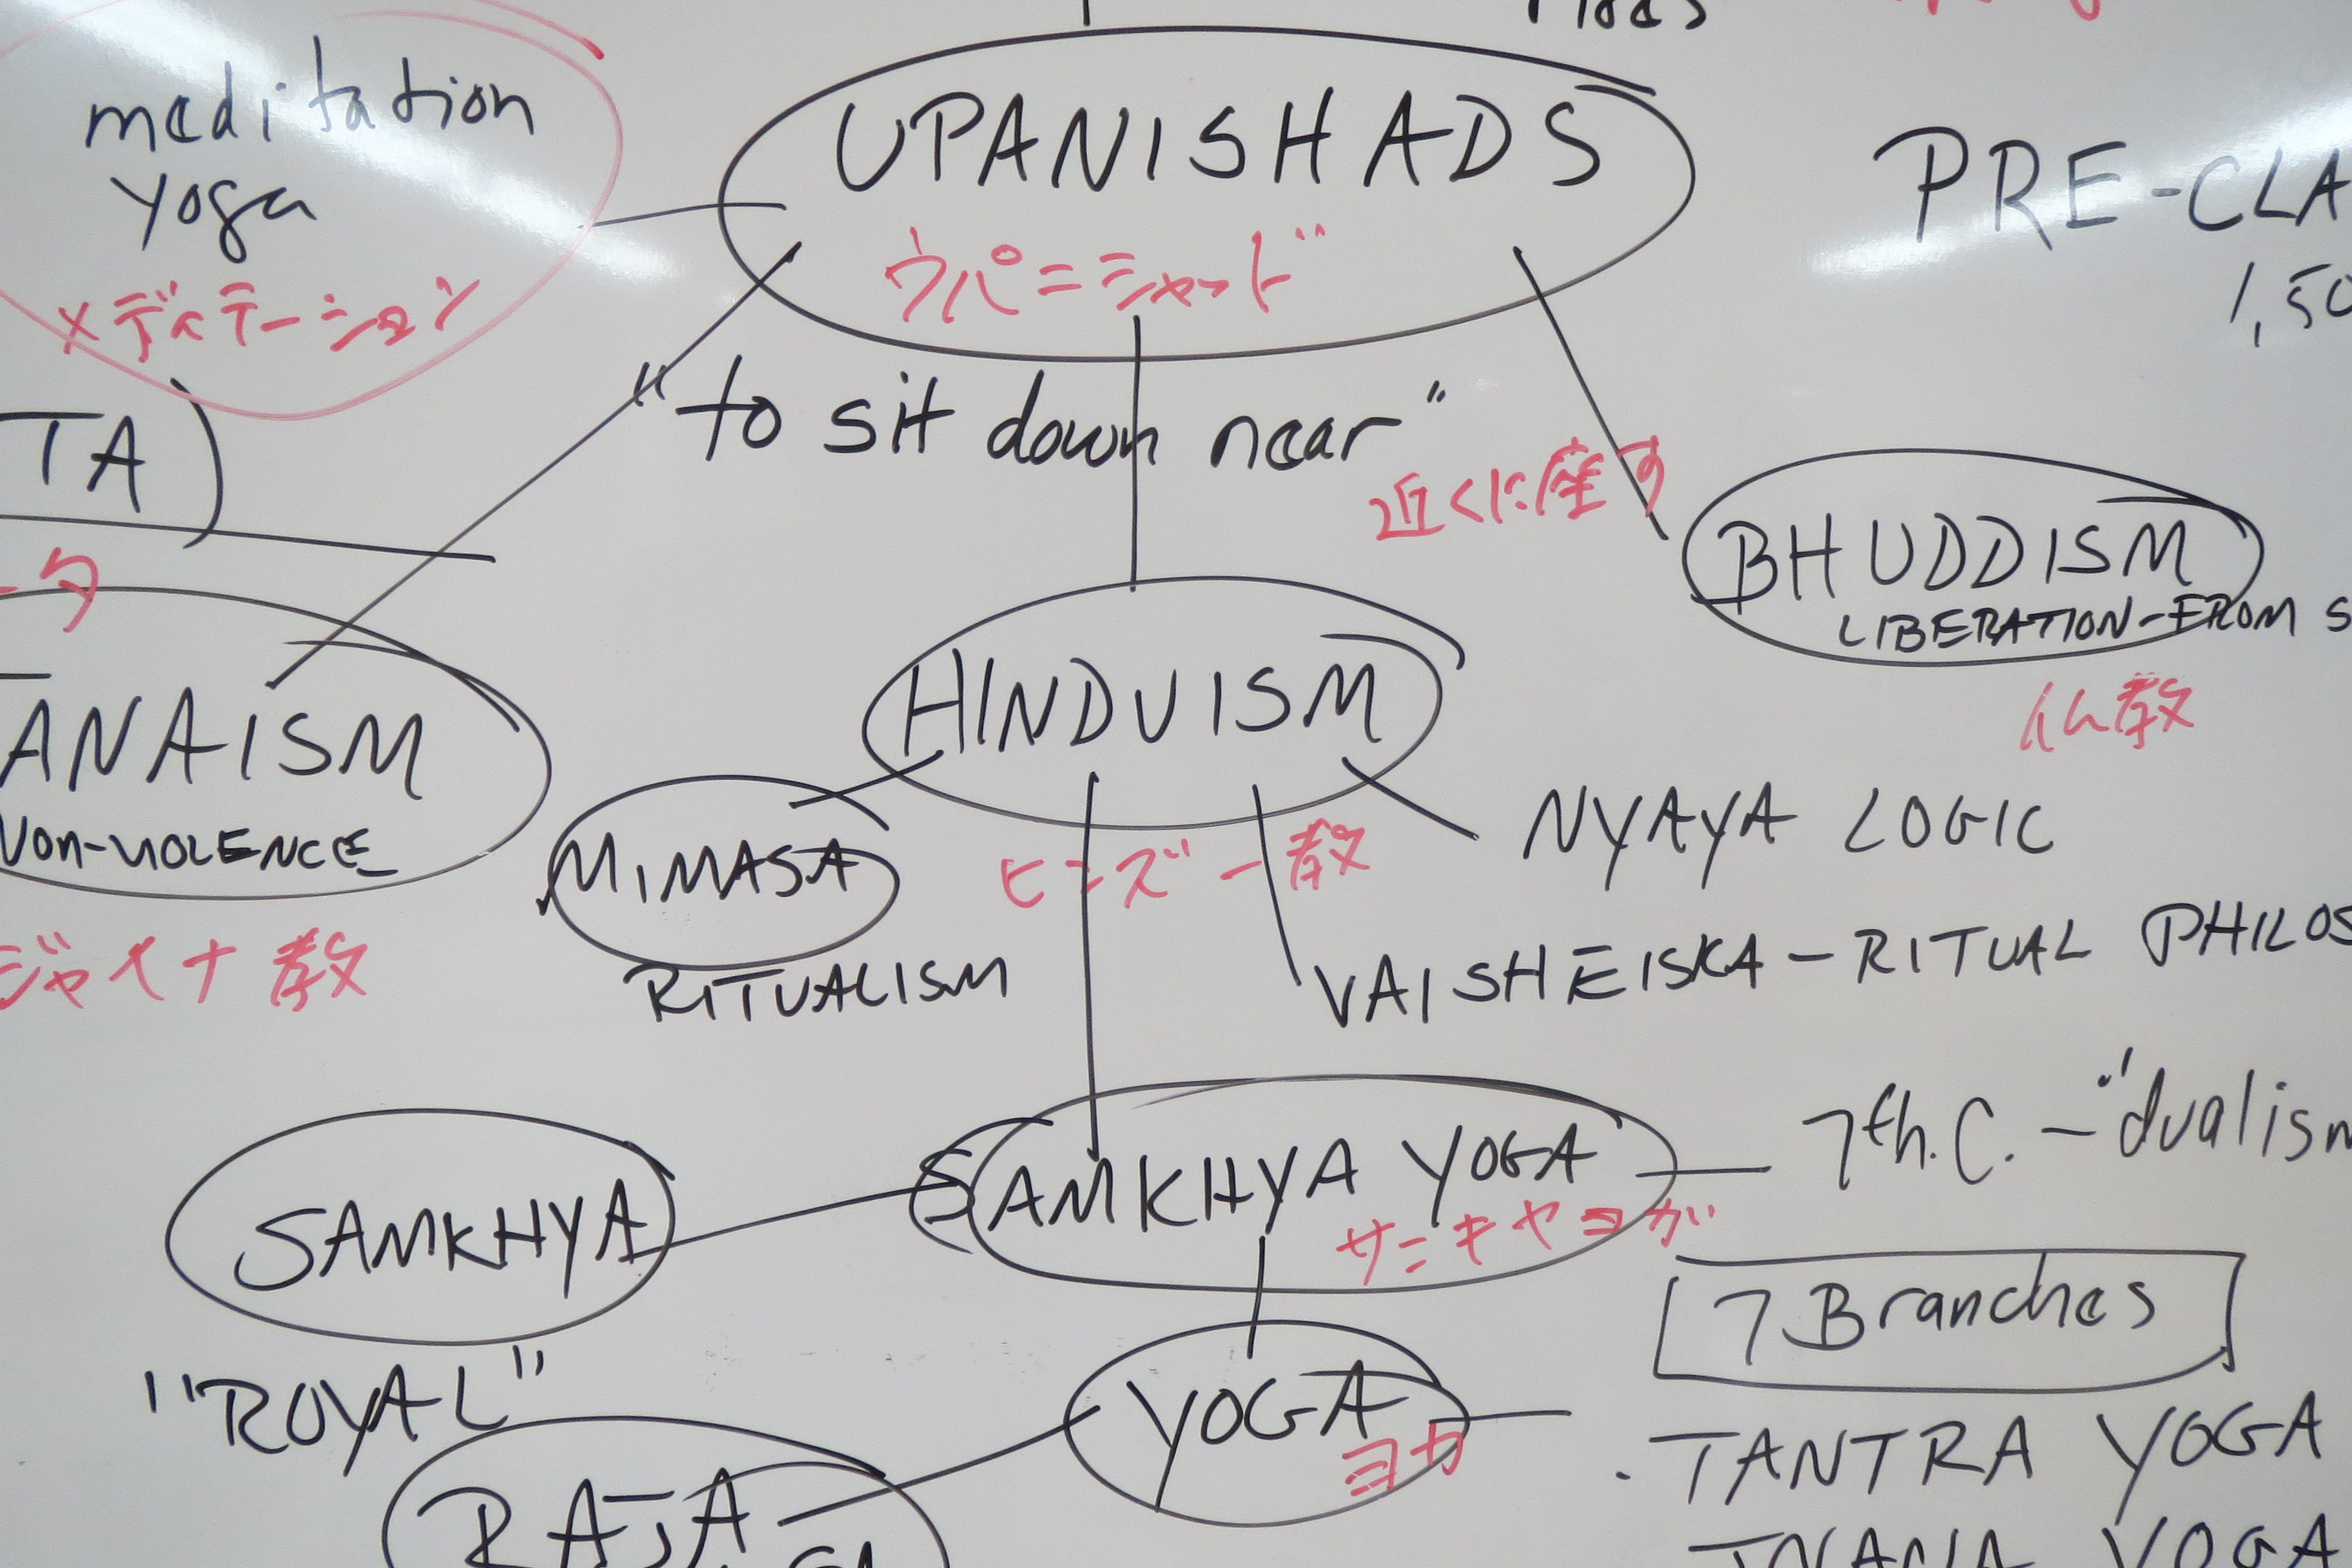 meditation
yoga
メディテーション
UPANISHADS
ウパニシャッド
PRE-CLA
1,50
"to sit down near"
近くに座す
TA)
ータ
BHUDDISM
LIBERATION-FROM S
仏教
HINDUISM
ヒンズー教
ANAISM
NON-VIOLENCE
ジャイナ教
MIMASA
RITUALISM
NYAYA LOGIC
VAISHEISKA - RITUAL PHILOS
SAMKHYA YOGA
サンキヤヨガ
7th. C. - "dualism
SAMKHYA
"ROYAL"
7 Branches
YOGA
ヨガ
RAJA
GA
. TANTRA YOGA
JNANA YOGA